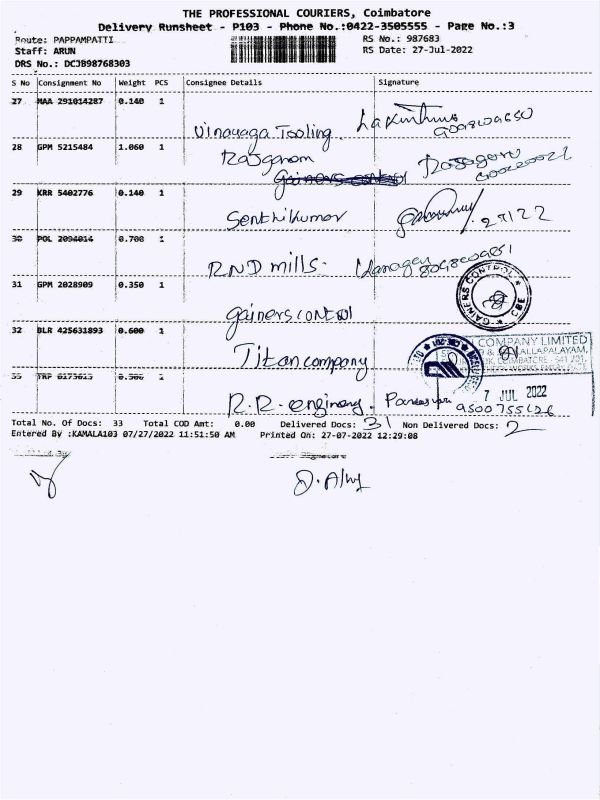 THE PROFESSIONAL COURIERS, Coimbatore
Delivery Runsheet - P103 - Phone No.:0422-3505555 - Page No.:3
Route: PAPPAMPATTI
RS No.: 987683
Staff: ARUN
RS Date: 27-Jul-2022
DRS No.: DCJB98768303
S No Consignment No Weight PCS Consignee Details Signature
27 MAA 291014287 0.140 1
Vinayaga Tooling
28 GPM 5215484 1.060 1
Rajganam
Gainers control
29 KRR 5402776 0.140 1
Senthilkumar
30 POL 2094014 0.700 1
RND mills.
31 GPM 2028909 0.350 1
GAINERS CONTROL CBE
gainers control
32 BLR 425631893 0.600 1
COMPANY LIMITED
Titan company
33 TRP 0.500 1
7 JUL 2022
R.R. enginery.
Total No. Of Docs: 33 Total COD Amt: 0.00 Delivered Docs: 31 Non Delivered Docs: 2
Entered By :KAMALA103 07/27/2022 11:51:50 AM Printed On: 27-07-2022 12:29:08
Signature